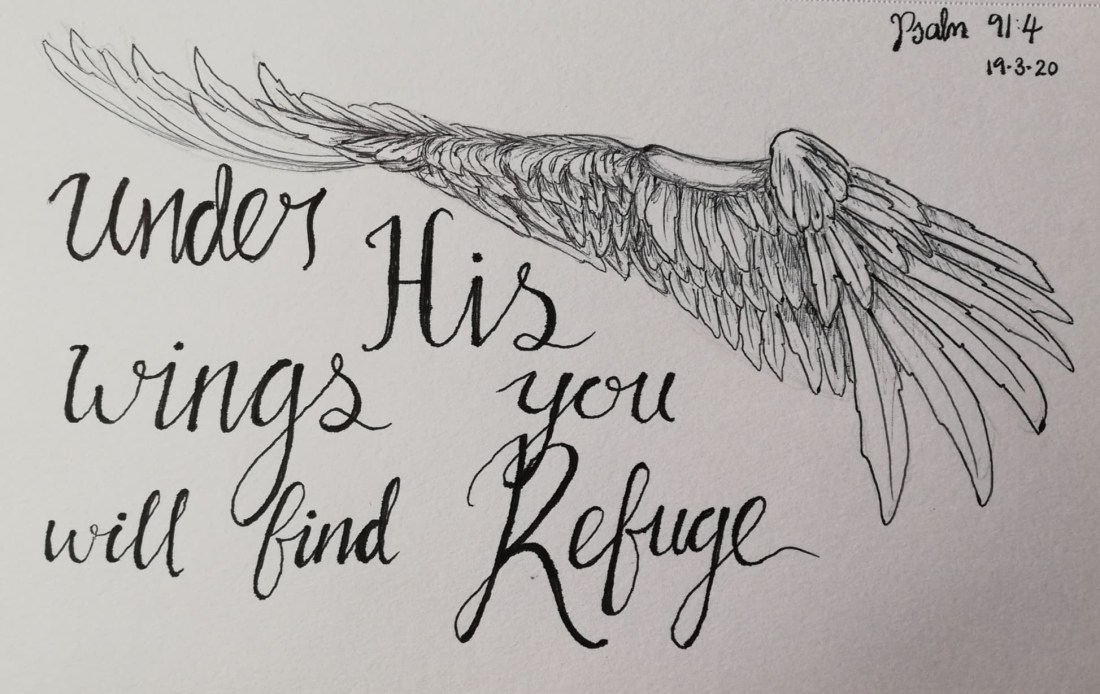 Psalm 91:4
19.3.20
Under
His
wings you
will find Refuge